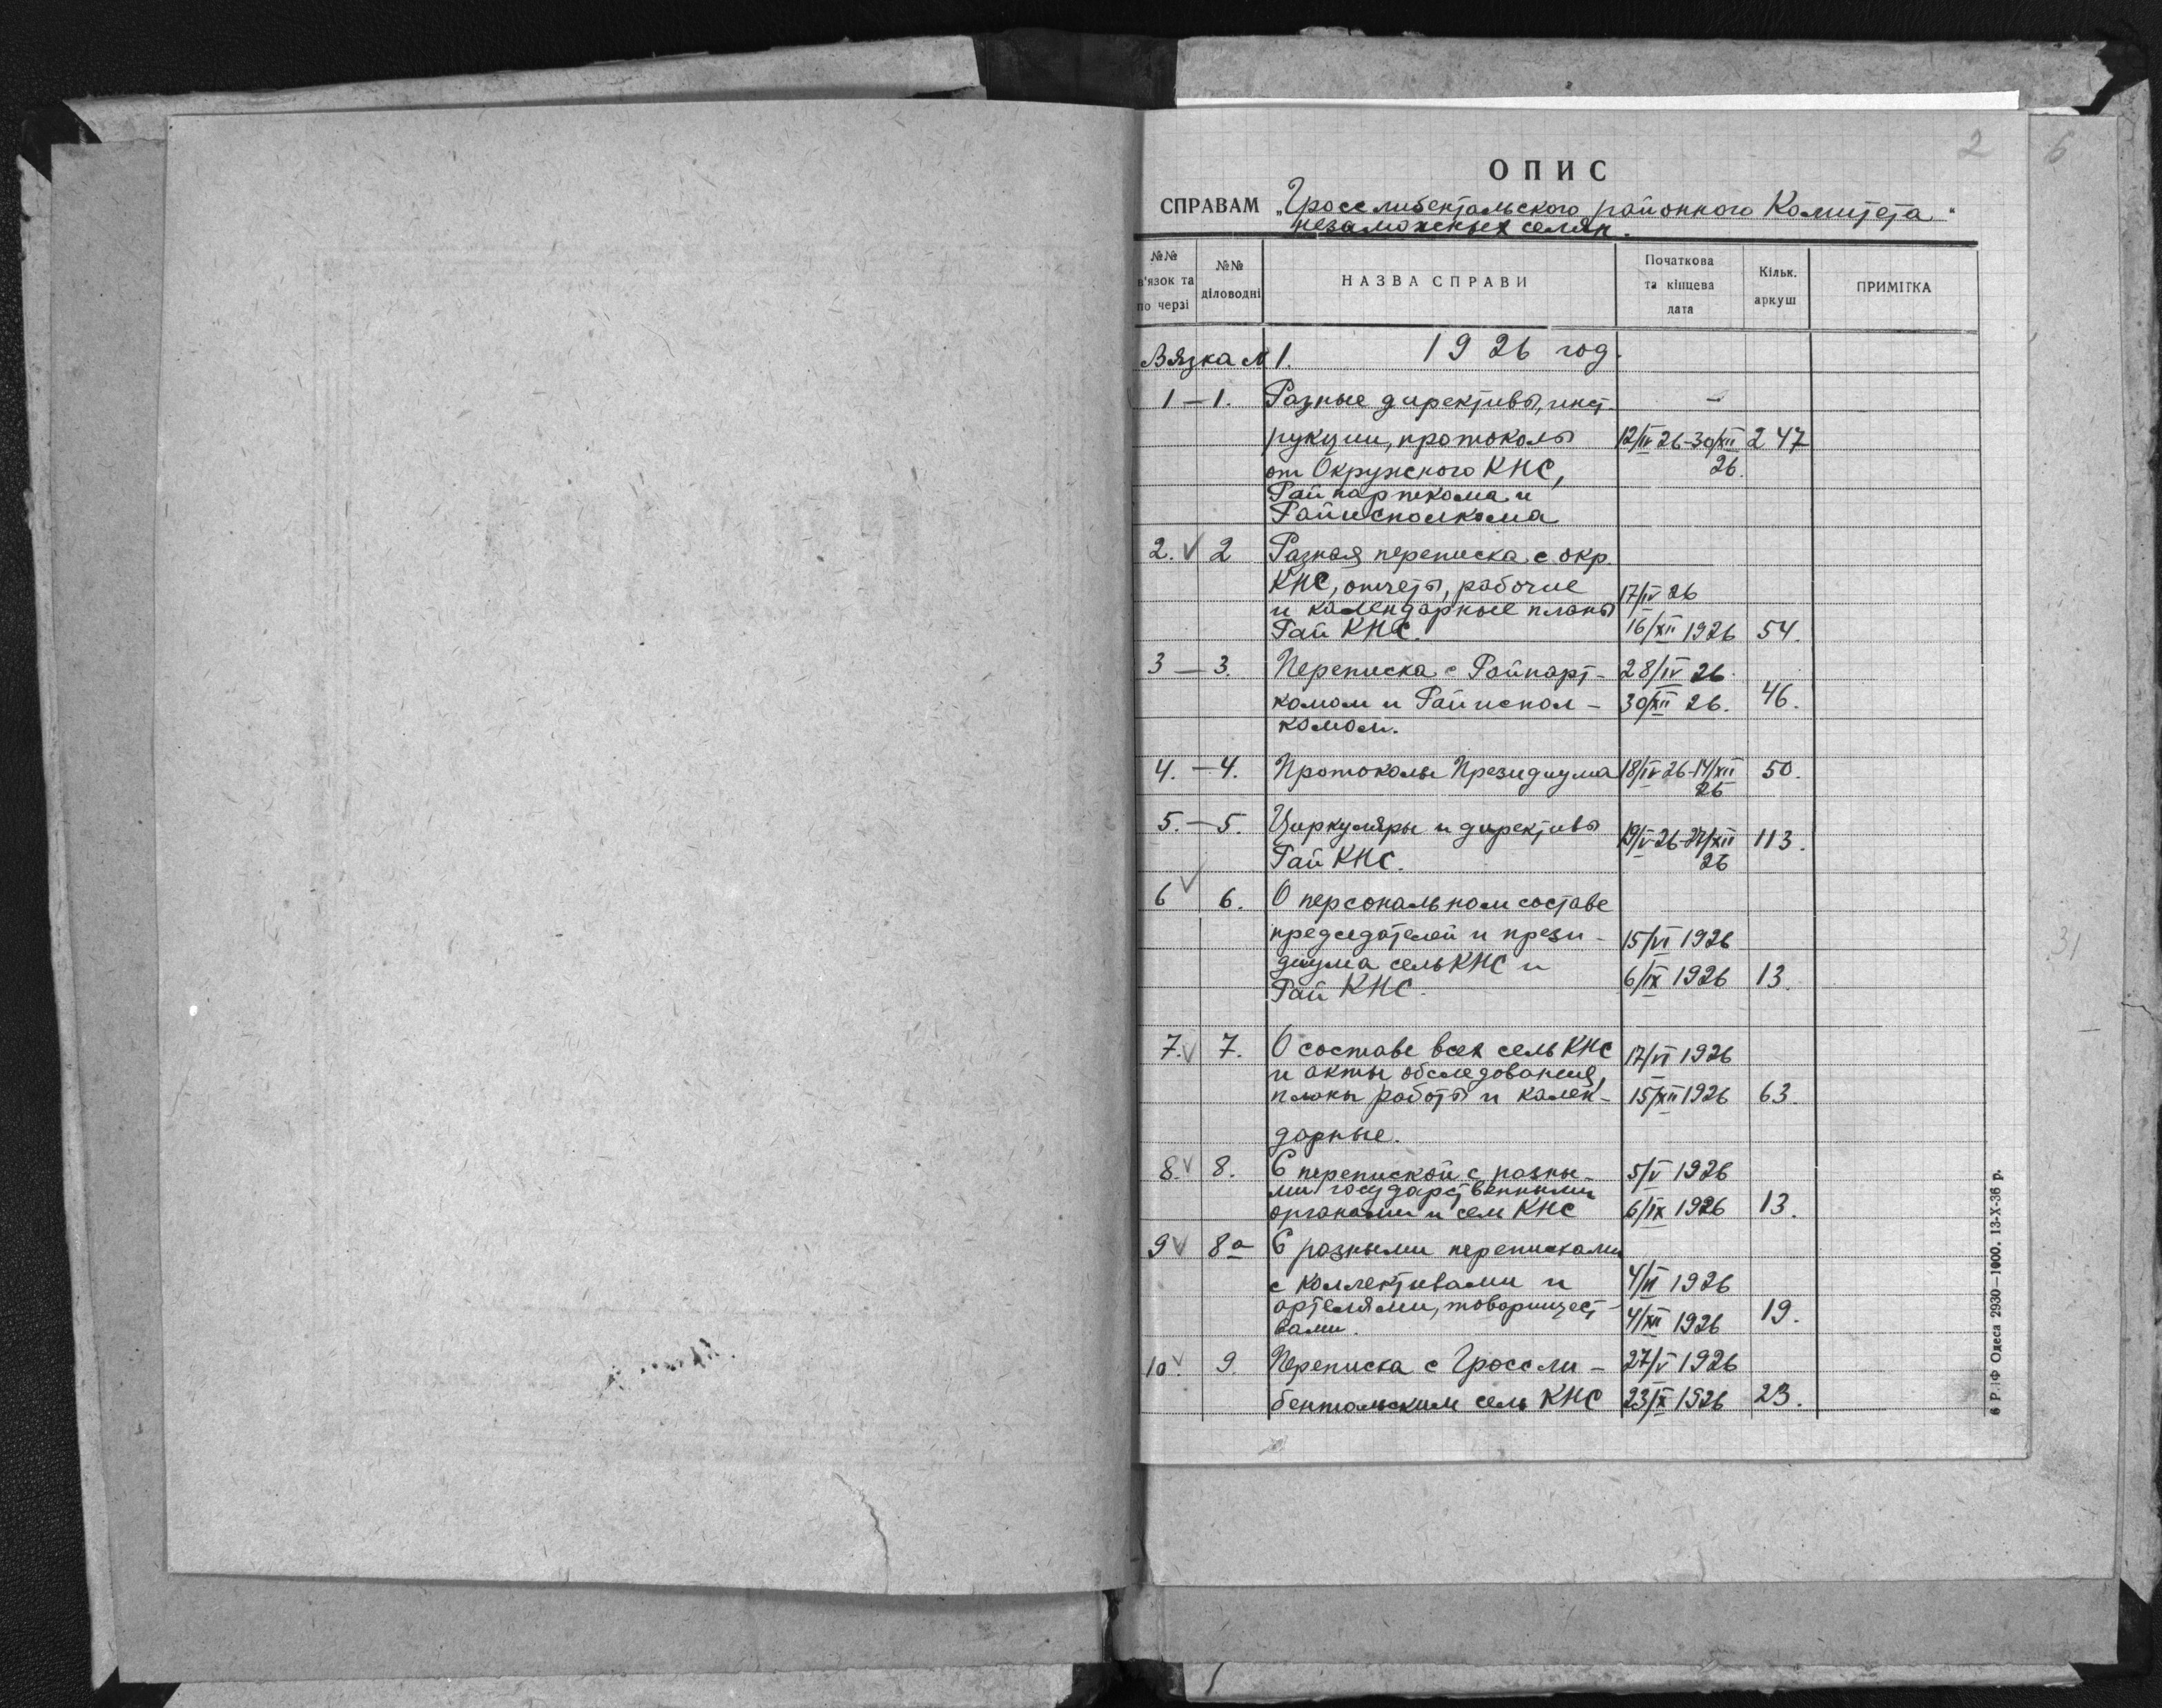 2 6
ОПИС
СПРАВАМ „Гросслибентальского районного Комитета"
незаможных селян.
№№ в'язок та по черзі | №№ діловодні | НАЗВА СПРАВИ | Початкова та кінцева дата | Кільк. аркуш | ПРИМІТКА
Вязка № 1. 1926 год.
1 — 1. Разные директивы, инст-
рукции, протоколы 12/IV 26-30/XII 247
от Окружного КНС, 26.
Райпарткома и
Райисполкома
2. ✓ 2 Разная переписка с окр.
КНС, отчеты, рабочие 17/IV 26
и календарные планы
Рай КНС. 16/XII 1926 54.
3 — 3. Переписка с Райпарт- 28/IV 26.
комом и Райиспол- 30/XII 26. 46.
комом.
4. — 4. Протоколы Президиума 18/IV 26-14/XII 50.
26
5. — 5. Циркуляры и директивы 19/V 26-27/XII 113.
Рай КНС. 26
6 ✓ 6. О персональном составе
председателей и прези- 15/VI 1926
диума сельКНС и
Рай КНС. 6/IX 1926 13.
7. ✓ 7. О составе всех сель КНС 17/VI 1926
и акты обследования,
планы работы и кален- 15/XII 1926 63.
дарные.
8. ✓ 8. С перепиской с разны- 5/V 1926
ми государственными
органами и сел КНС 6/IX 1926 13.
9 ✓ 8а С разными переписками
с коллективами и 4/VI 1926
артелями, товарищест-
вами. 4/XII 1926 19.
10. ✓ 9. Переписка с Гроссли- 27/V 1926
бентальским сель КНС 23/IX 1926 23.
31
6 Р Ф Одеса 2930—1000. 13-X-36 р.